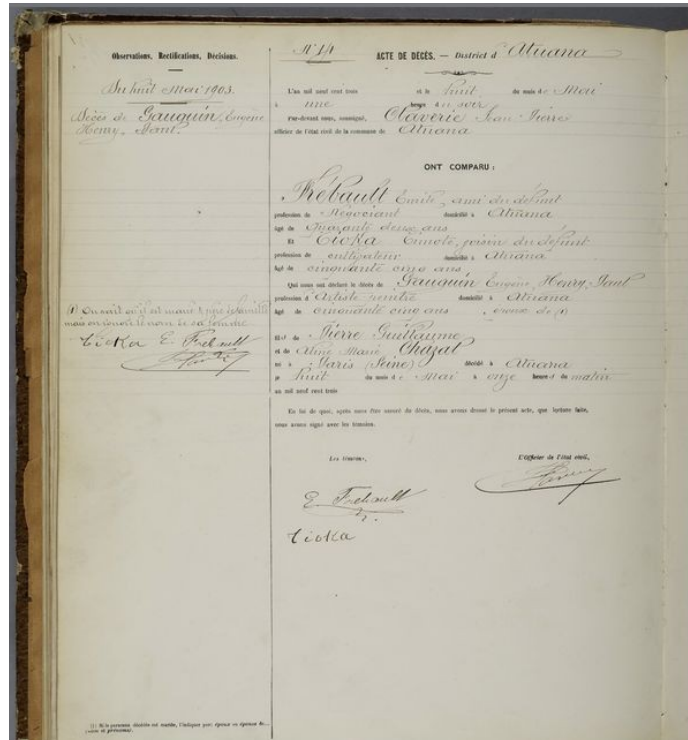 Observations, Rectifications, Décisions.
Du huit Mai 1903.
Décès de Gauguin, Eugène
Henry, Paul.
(1) On sait qu'il est marié & père de famille
mais on ignore le nom de sa
Tioka E. Frébault
(1) Si la personne décédée est mariée, l'indiquer par: époux ou épouse de...
(nom et prénoms).
N° 14 ACTE DE DÉCÈS. — District d'Atuana
L'an mil neuf cent trois et le huit du mois de Mai
à une heure du soir
Par-devant nous, soussigné, Claverie Jean Pierre
officier de l'état civil de la commune de Atuana
ONT COMPARU :
Frébault Emile, ami du défunt
profession de Négociant domicilié à Atuana
âgé de Quarante deux ans
Et Tioka Timoté, voisin du défunt
profession de cultivateur domicilié à Atuana
âgé de cinquante cinq ans
Qui nous ont déclaré le décès de Gauguin Eugène, Henry, Paul
profession d'Artiste peintre domicilié à Atuana
âgé de cinquante cinq ans , époux de (1)
fils de Pierre Guillaume
et de Aline Marie Chazal
né à Paris (Seine) décédé à Atuana
le huit du mois de Mai à onze heures du matin
an mil neuf cent trois
En foi de quoi, après nous être assuré du décès, nous avons dressé le présent acte, que lecture faite,
nous avons signé avec les témoins.
Les témoins, L'Officier de l'état civil,
E. Frébault
Tioka